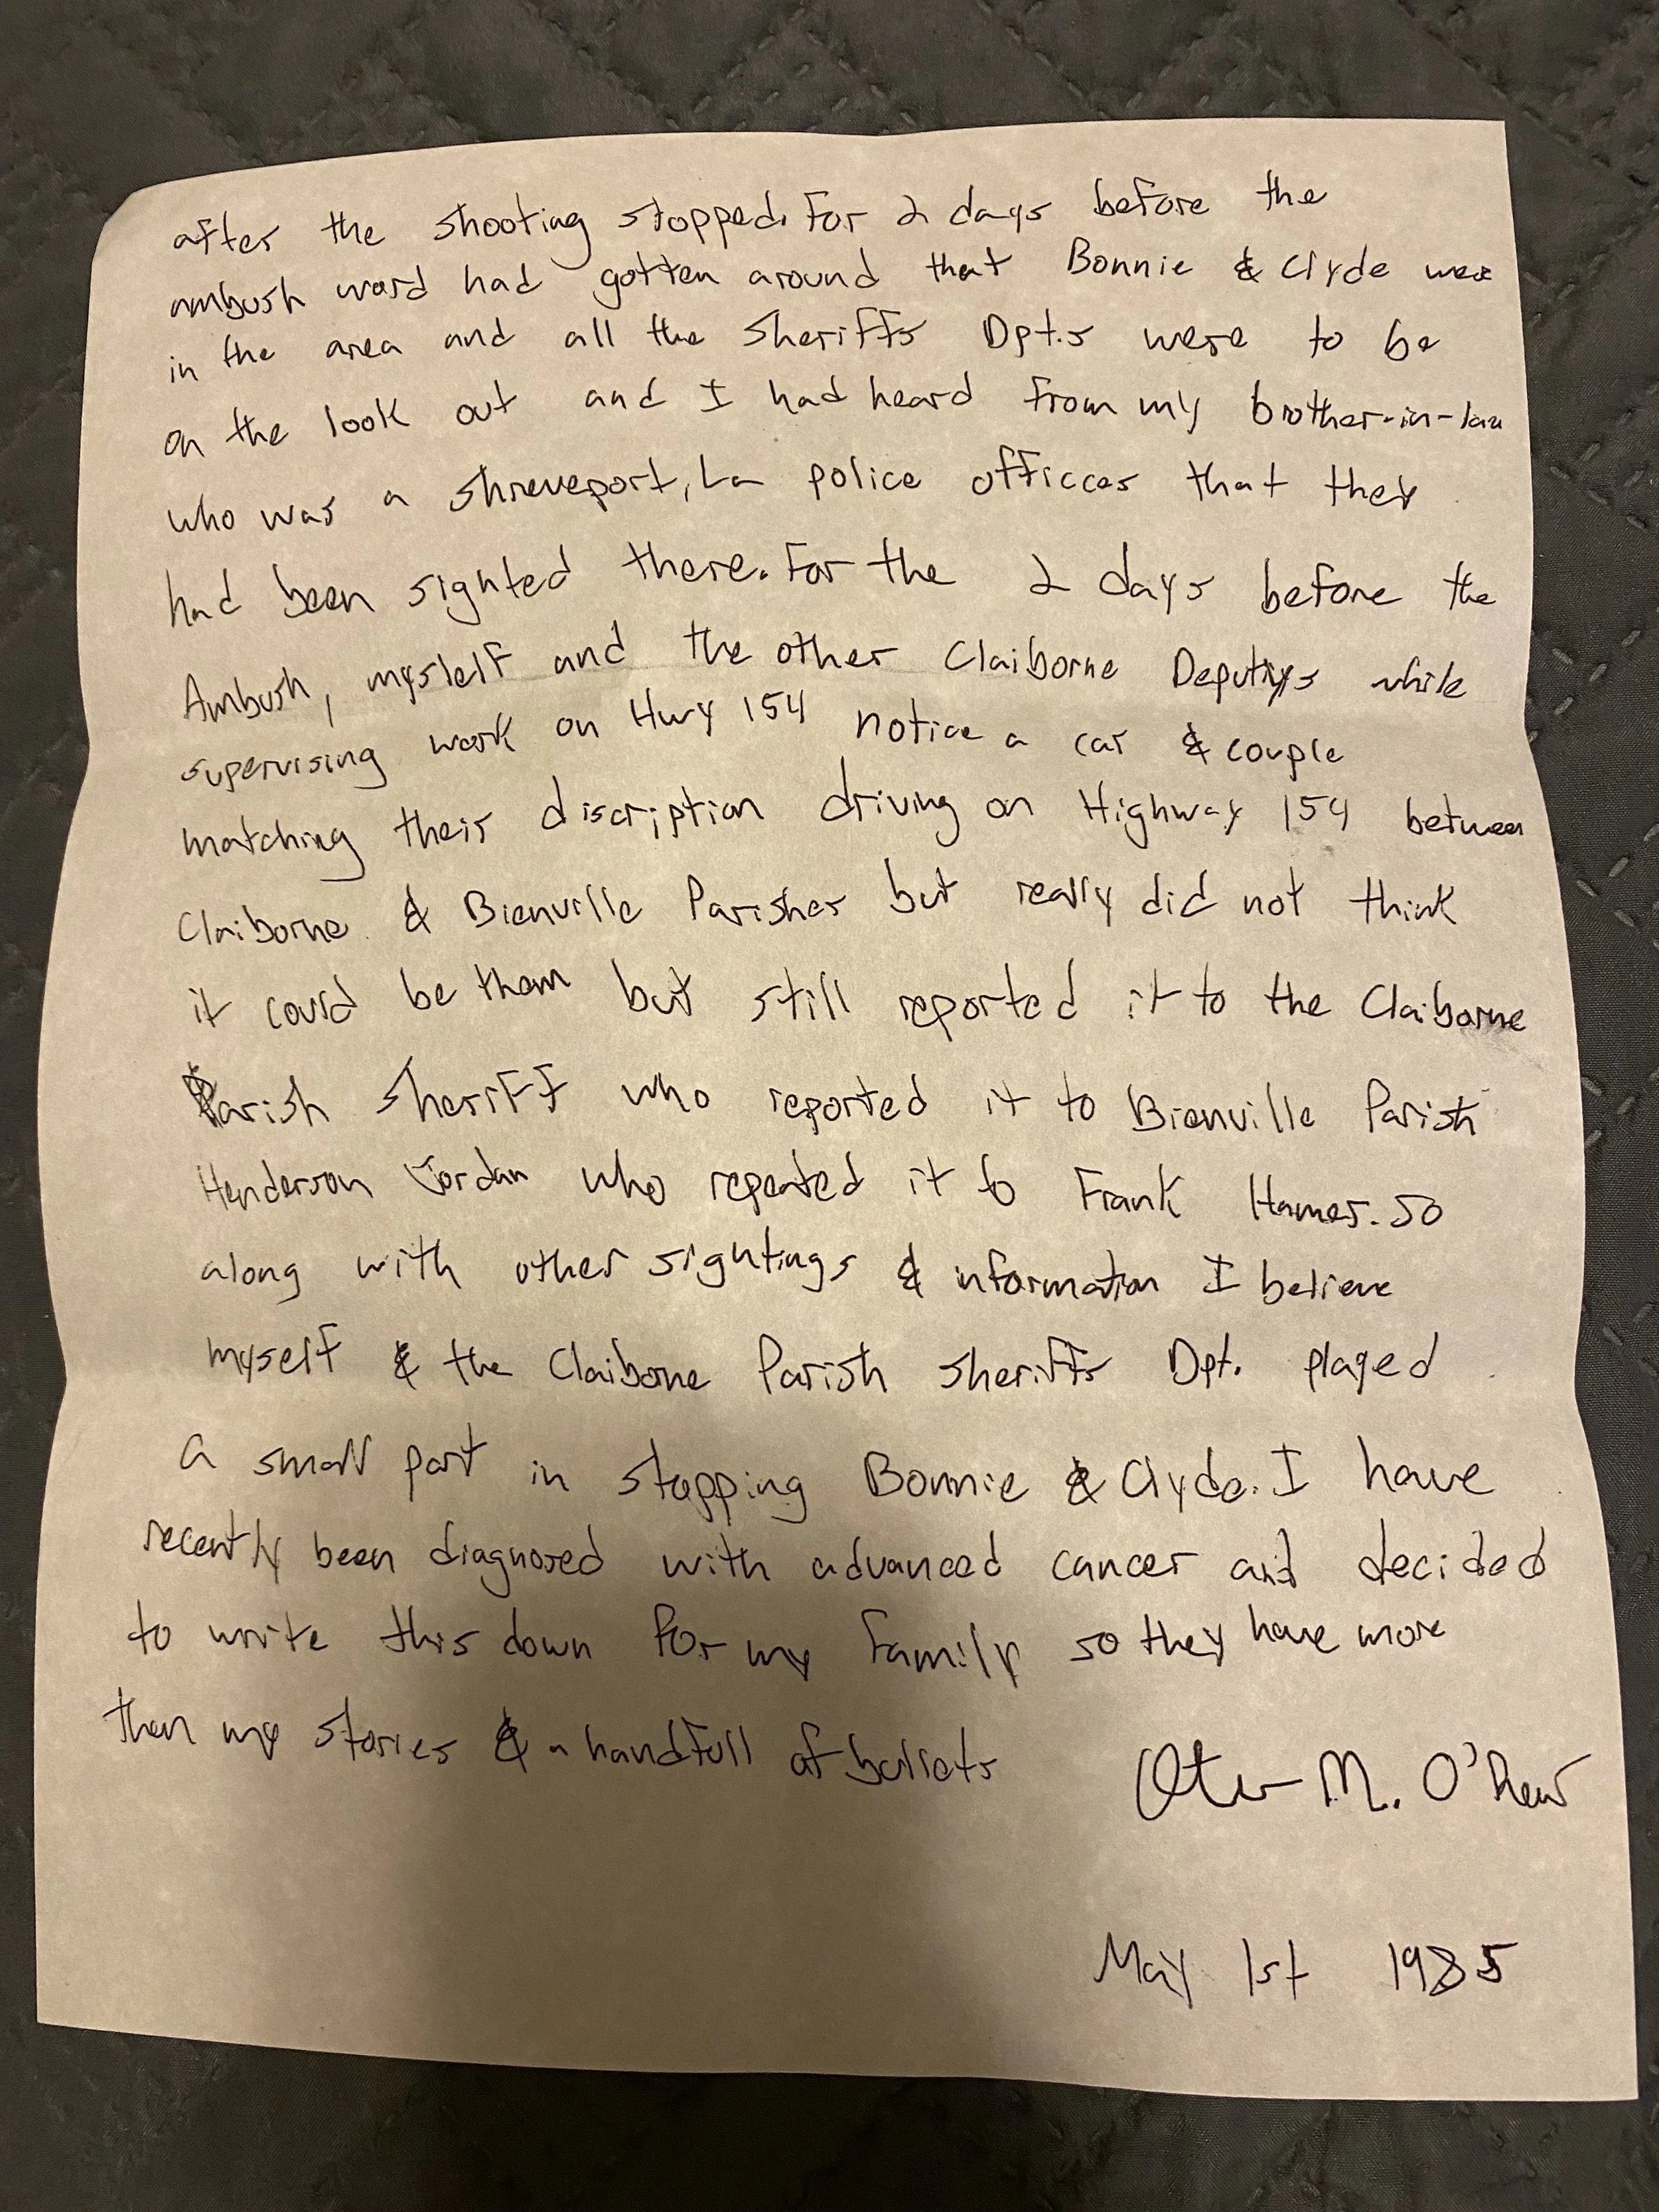 after the shooting stopped. For 2 days before the
ambush word had gotten around that Bonnie & Clyde were
in the area and all the Sheriffs Dpt.s were to be
on the look out and I had heard from my brother-in-law
who was a Shreveport, La police officcer that they
had been sighted there. For the 2 days before the
Ambush, myslelf and the other Claiborne Deputiys while
supervising work on Hwy 154 notice a car & couple
matching their discription driving on Highway 154 between
Claiborne & Bienville Parishes but really did not think
it could be them but still reported it to the Claiborne
Parish Sheriff who reported it to Bienville Parish
Henderson Jordan who repeated it to Frank Hamer. So
along with other sightings & information I believe
myself & the Claiborne Parish Sheriffs Dpt. played
a small part in stopping Bonnie & Clyde. I have
recently been diagnosed with advanced cancer and decided
to write this down for my family so they have more
then my stories & a handfull of bullets
M.
May 1st 1985